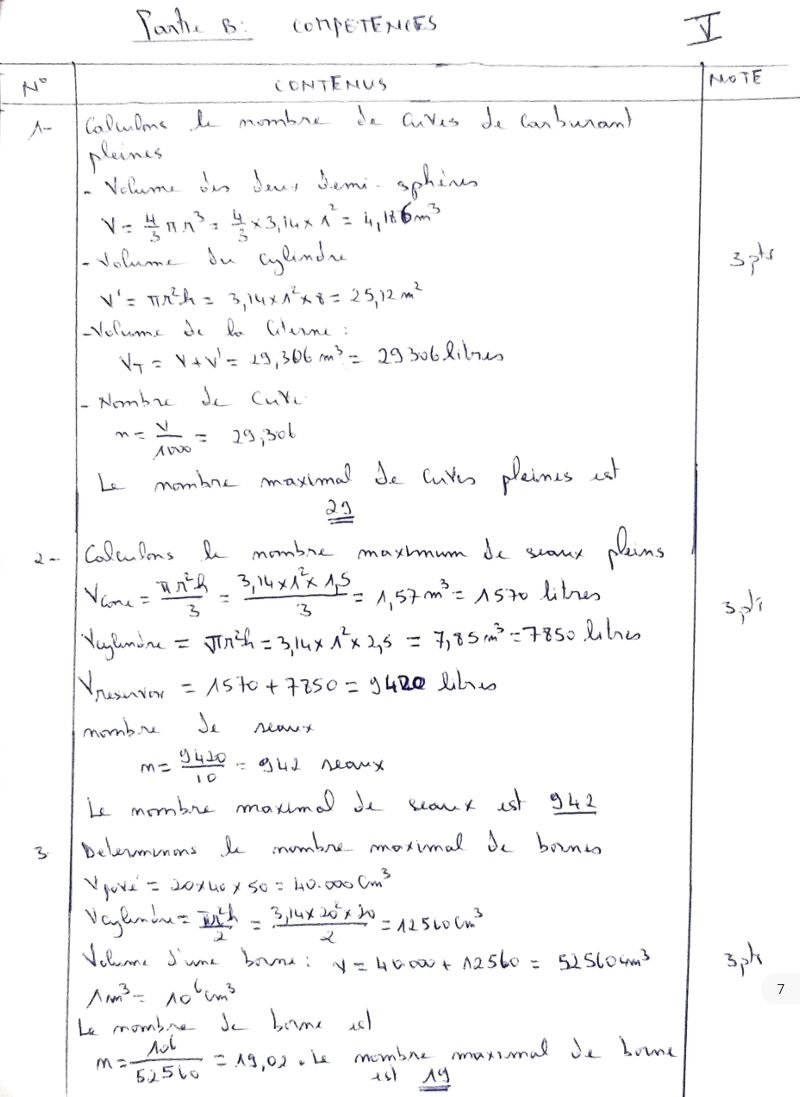 Partie B: COMPETENCES V
N° CONTENUS NOTE
1- Calculons le nombre de cuves de carburant
pleines
- Volume des deux demi-sphères
V = 4/3 π r³ = 4/3 × 3,14 × 1² = 4,186 m³
- Volume du cylindre
3 pts
V' = πr²h = 3,14 × 1² × 8 = 25,12 m²
- Volume de la citerne :
V_T = V + V' = 29,306 m³ = 29306 litres
- Nombre de cuve
n = V/1000 = 29,306
Le nombre maximal de cuves pleines est
29
2- Calculons le nombre maximum de seaux pleins
Vcone = πr²h/3 = 3,14×1²×1,5/3 = 1,57 m³ = 1570 litres
3 pts
Vcylindre = πr²h = 3,14 × 1² × 2,5 = 7,85 m³ = 7850 litres
Vreservoir = 1570 + 7850 = 9420 litres
nombre de seaux
n = 9420/10 = 942 seaux
Le nombre maximal de seaux est 942
3 Determinons le nombre maximal de bornes
Vpavé = 20×40 × 50 = 40.000 Cm³
Vcylindre = πr²h/2 = 3,14 × 20² × 20/2 = 12560 Cm³
Volume d'une borne : V = 40000 + 12560 = 52560 cm³
3 pts
1 m³ = 10⁶ Cm³
7
Le nombre de borne est
n = 10⁶/52560 = 19,02. Le nombre maximal de borne
est 19